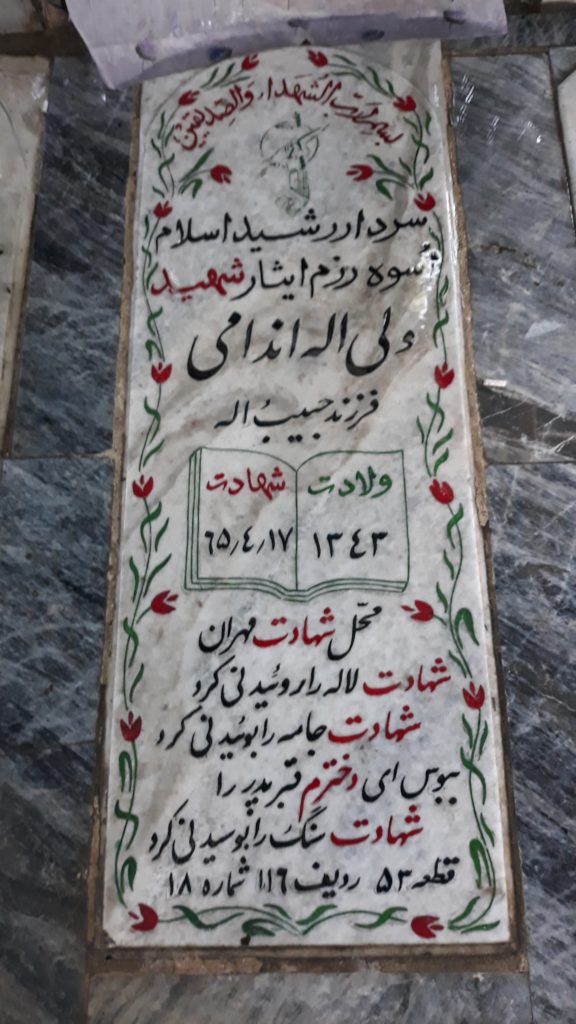 بسم رب الشهداء والصدیقین
سردار رشید اسلام
اسوه رزم ایثار شهید
ولی اله اندامی
فرزند حبیب اله
ولادت
۱۳۴۳
شهادت
۶۵٫۴٫۱۷
محل شهادت مهران
شهادت لاله را روئیدنی کرد
شهادت جامه را بوئیدنی کرد
ببوس ای دخترم قبر پدر را
شهادت سنگ را بوسیدنی کرد
قطعه ۵۳ ردیف ۱۱۶ شماره ۱۸